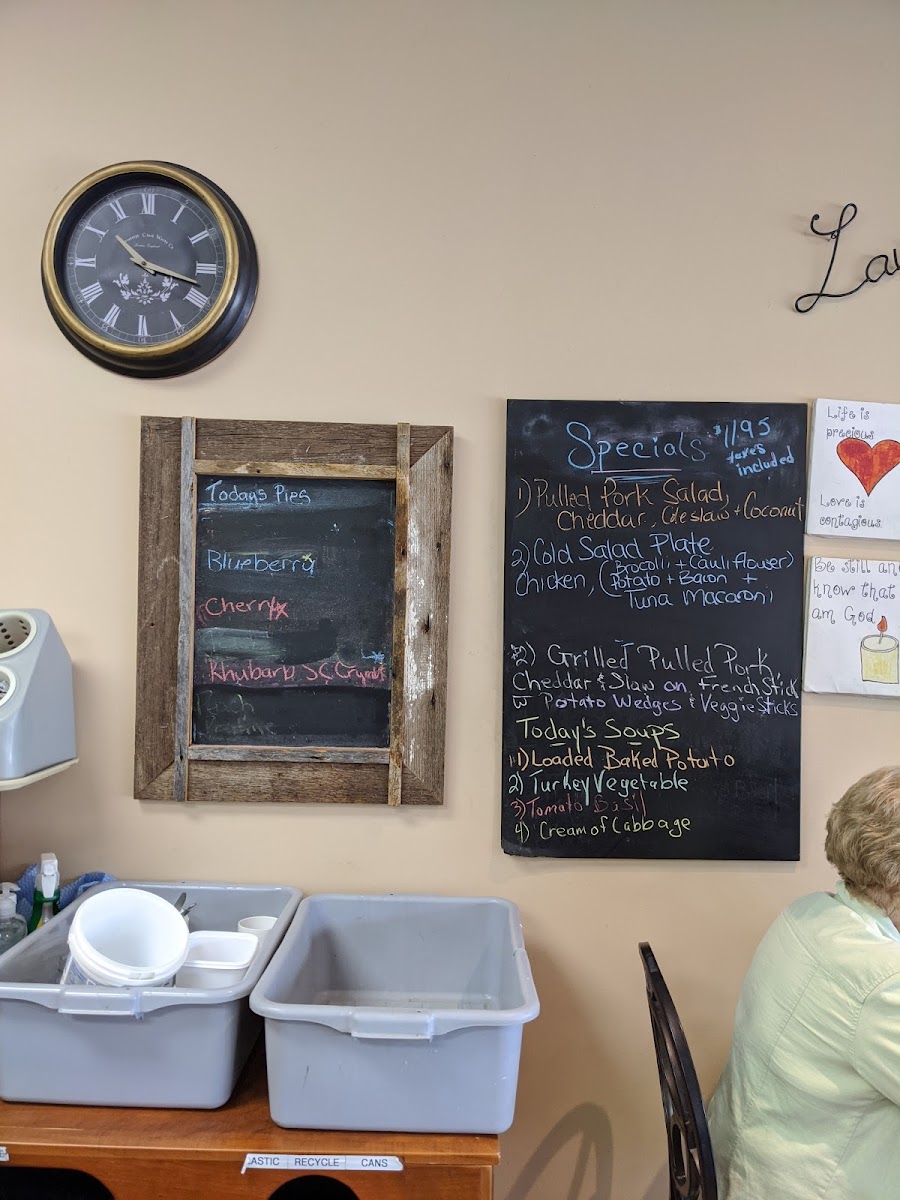 Lau
Today's Pies
Blueberry
Cherry
Rhubarb SC Crumble
Specials $11.95
taxes
included
1) Pulled Pork Salad,
Cheddar, Coleslaw + Coconut
2) Cold Salad Plate
Chicken, (Brocolli + Cauliflower)
Potato + Bacon +
Tuna Macaroni
2) Grilled Pulled Pork,
Cheddar & Slaw on French Stick
w Potato Wedges & Veggie Sticks
Today's Soups
1) Loaded Baked Potato
2) Turkey Vegetable
3) Tomato Basil
4) Cream of Cabbage
Life is
precious
Love is
contagious
Be still an
know that
am God.
ASTIC RECYCLE CANS